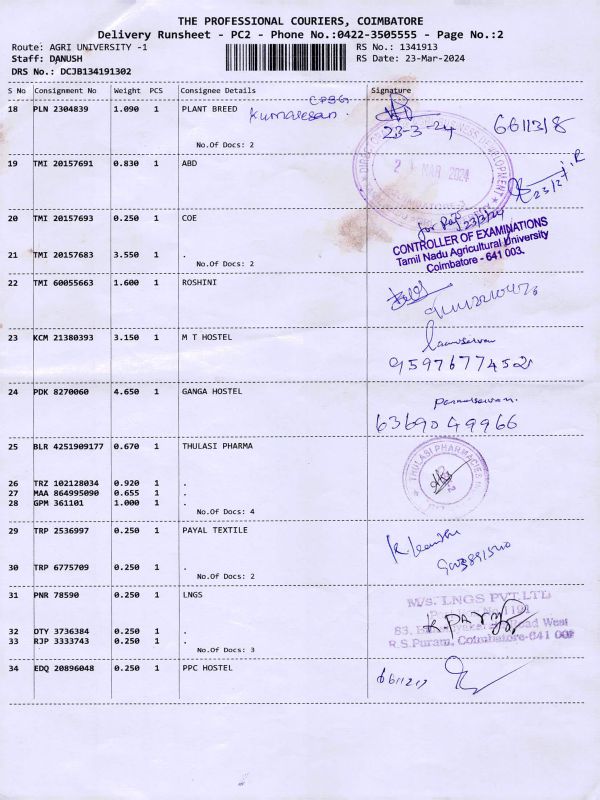 THE PROFESSIONAL COURIERS, COIMBATORE
Delivery Runsheet - PC2 - Phone No.:0422-3505555 - Page No.:2
Route: AGRI UNIVERSITY -1
Staff: DANUSH
DRS No.: DCJB134191302
RS No.: 1341913
RS Date: 23-Mar-2024
S No Consignment No Weight PCS Consignee Details Signature
18 PLN 2304839 1.090 1 PLANT BREED
CPBG
Kumaresan.
23-3-24
6611318
No.Of Docs: 2
19 TMI 20157691 0.830 1 ABD
MAR 2024
20 TMI 20157693 0.250 1 COE
CONTROLLER OF EXAMINATIONS
Tamil Nadu Agricultural University
Coimbatore - 641 003.
21 TMI 20157683 3.550 1 .
No.Of Docs: 2
22 TMI 60055663 1.600 1 ROSHINI
23 KCM 21380393 3.150 1 M T HOSTEL
9597677452
24 PDK 8270060 4.650 1 GANGA HOSTEL
6369049966
25 BLR 4251909177 0.670 1 THULASI PHARMA
THULASI PHARMACIES
26 TRZ 102128034 0.920 1 .
27 MAA 864995090 0.655 1 .
28 GPM 361101 1.000 1 .
No.Of Docs: 4
29 TRP 2536997 0.250 1 PAYAL TEXTILE
30 TRP 6775709 0.250 1 .
No.Of Docs: 2
31 PNR 78590 0.250 1 LNGS
M/s. LNGS PVT LTD
R.S.Puram, Coimbatore-641 002
32 OTY 3736384 0.250 1 .
33 RJP 3333743 0.250 1 .
No.Of Docs: 3
34 EDQ 20896048 0.250 1 PPC HOSTEL